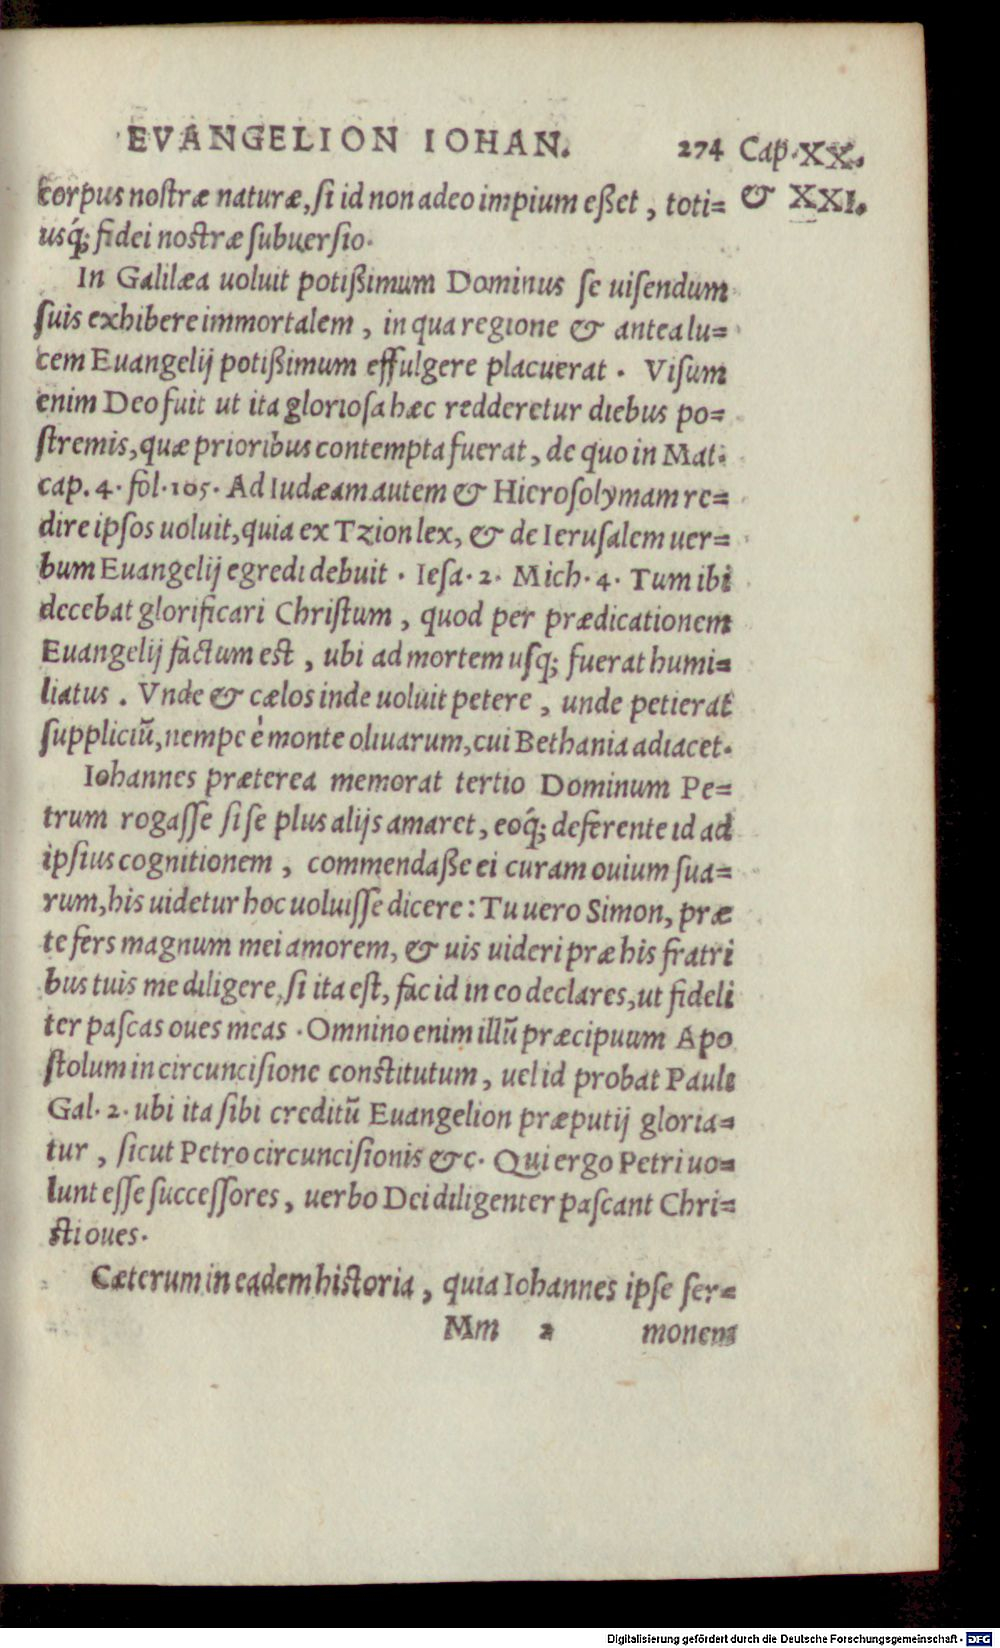 EVANGELION IOHAN. 274 Cap. XX.
corpus nostræ naturæ, si id non adeo impium eßet, toti= & XXI.
usq́; fidei nostræ subuersio.
In Galilæa uoluit potißimum Dominus se uisendum
suis exhibere immortalem, in qua regione & antea lu=
cem Euangelij potißimum effulgere placuerat. Visum
enim Deo fuit ut ita gloriosa hæc redderetur diebus po=
stremis, quæ prioribus contempta fuerat, de quo in Mat.
cap. 4. fol. 105. Ad Iudæam autem & Hierosolymam re=
dire ipsos uoluit, quia ex Tzion lex, & de Ierusalem uer=
bum Euangelij egredi debuit. Iesa. 2. Mich. 4. Tum ibi
decebat glorificari Christum, quod per prædicationem
Euangelij factum est, ubi ad mortem usq; fuerat humi=
liatus. Vnde & cælos inde uoluit petere, unde petierat
suppliciũ, nempe è monte oliuarum, cui Bethania adiacet.
Iohannes præterea memorat tertio Dominum Pe=
trum rogasse si se plus alijs amaret, eoq́; deferente id ad
ipsius cognitionem, commendaße ei curam ouium sua=
rum, his uidetur hoc uoluisse dicere: Tu uero Simon, præ
te fers magnum mei amorem, & uis uideri præ his fratri
bus tuis me diligere, si ita est, fac id in eo declares, ut fideli
ter pascas oues meas. Omnino enim illũ præcipuum Apo
stolum in circuncisione constitutum, uel id probat Pauli
Gal. 2. ubi ita sibi creditũ Euangelion præputij gloria=
tur, sicut Petro circuncisionis &c. Qui ergo Petri uo=
lunt esse successores, uerbo Dei diligenter pascant Chri=
sti oues.
Cæterum in eadem historia, quia Iohannes ipse ser=
Mm 2 monem
Digitalisierung gefördert durch die Deutsche Forschungsgemeinschaft - DFG